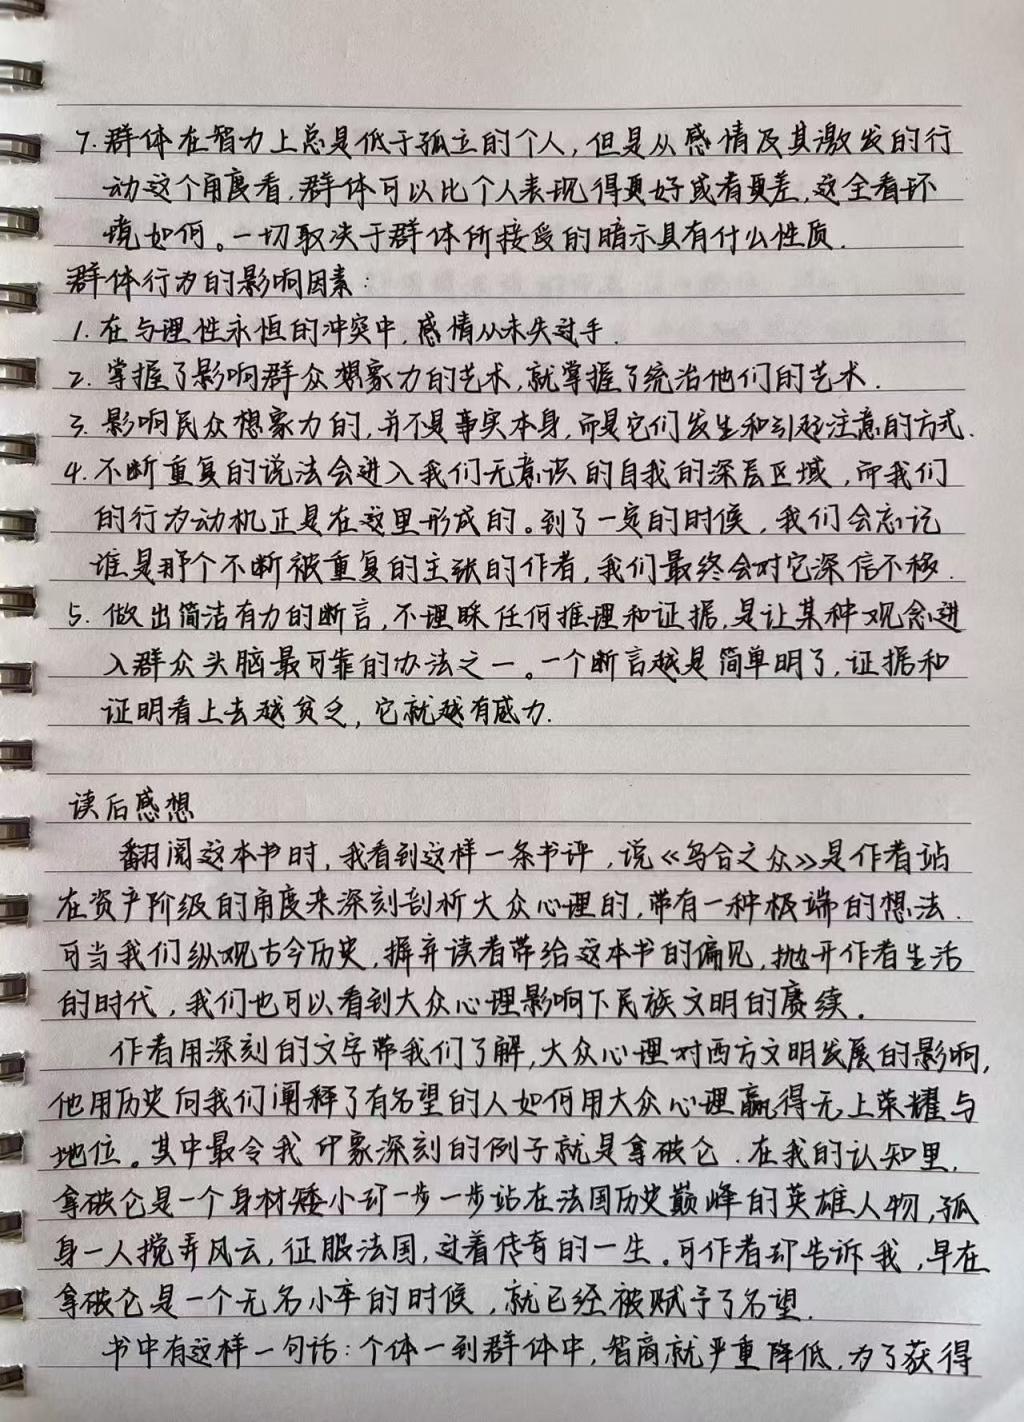 7. 群体在智力上总是低于孤立的个人，但是从感情及其激发的行
动这个角度看，群体可以比个人表现得更好或者更差，这全看环
境如何。一切取决于群体所接受的暗示具有什么性质．
群体行为的影响因素：
1. 在与理性永恒的冲突中，感情从未失过手．
2. 掌握了影响群众想象力的艺术，就掌握了统治他们的艺术．
3. 影响民众想象力的，并不是事实本身，而是它们发生和引起注意的方式．
4. 不断重复的说法会进入我们无意识的自我的深层区域，而我们
的行为动机正是在这里形成的。到了一定的时候，我们会忘记
谁是那个不断被重复的主张的作者，我们最终会对它深信不移．
5. 做出简洁有力的断言，不理睬任何推理和证据，是让某种观念进
入群众头脑最可靠的办法之一。一个断言越是简单明了，证据和
证明看上去越贫乏，它就越有威力．
读后感想
翻阅这本书时，我看到这样一条书评，说《乌合之众》是作者站
在资产阶级的角度来深刻剖析大众心理的，带有一种极端的想法．
可当我们纵观古今历史，摒弃读者带给这本书的偏见，抛开作者生活
的时代，我们也可以看到大众心理影响下民族文明的赓续。
作者用深刻的文字带我们了解，大众心理对西方文明发展的影响，
他用历史向我们阐释了有名望的人如何用大众心理赢得无上荣耀与
地位。其中最令我印象深刻的例子就是拿破仑．在我的认知里，
拿破仑是一个身材矮小却一步一步站在法国历史巅峰的英雄人物，孤
身一人搅弄风云，征服法国，过着传奇的一生。可作者却告诉我，早在
拿破仑是一个无名小卒的时候，就已经被赋予了名望．
书中有这样一句话：个体一到群体中，智商就严重降低，为了获得